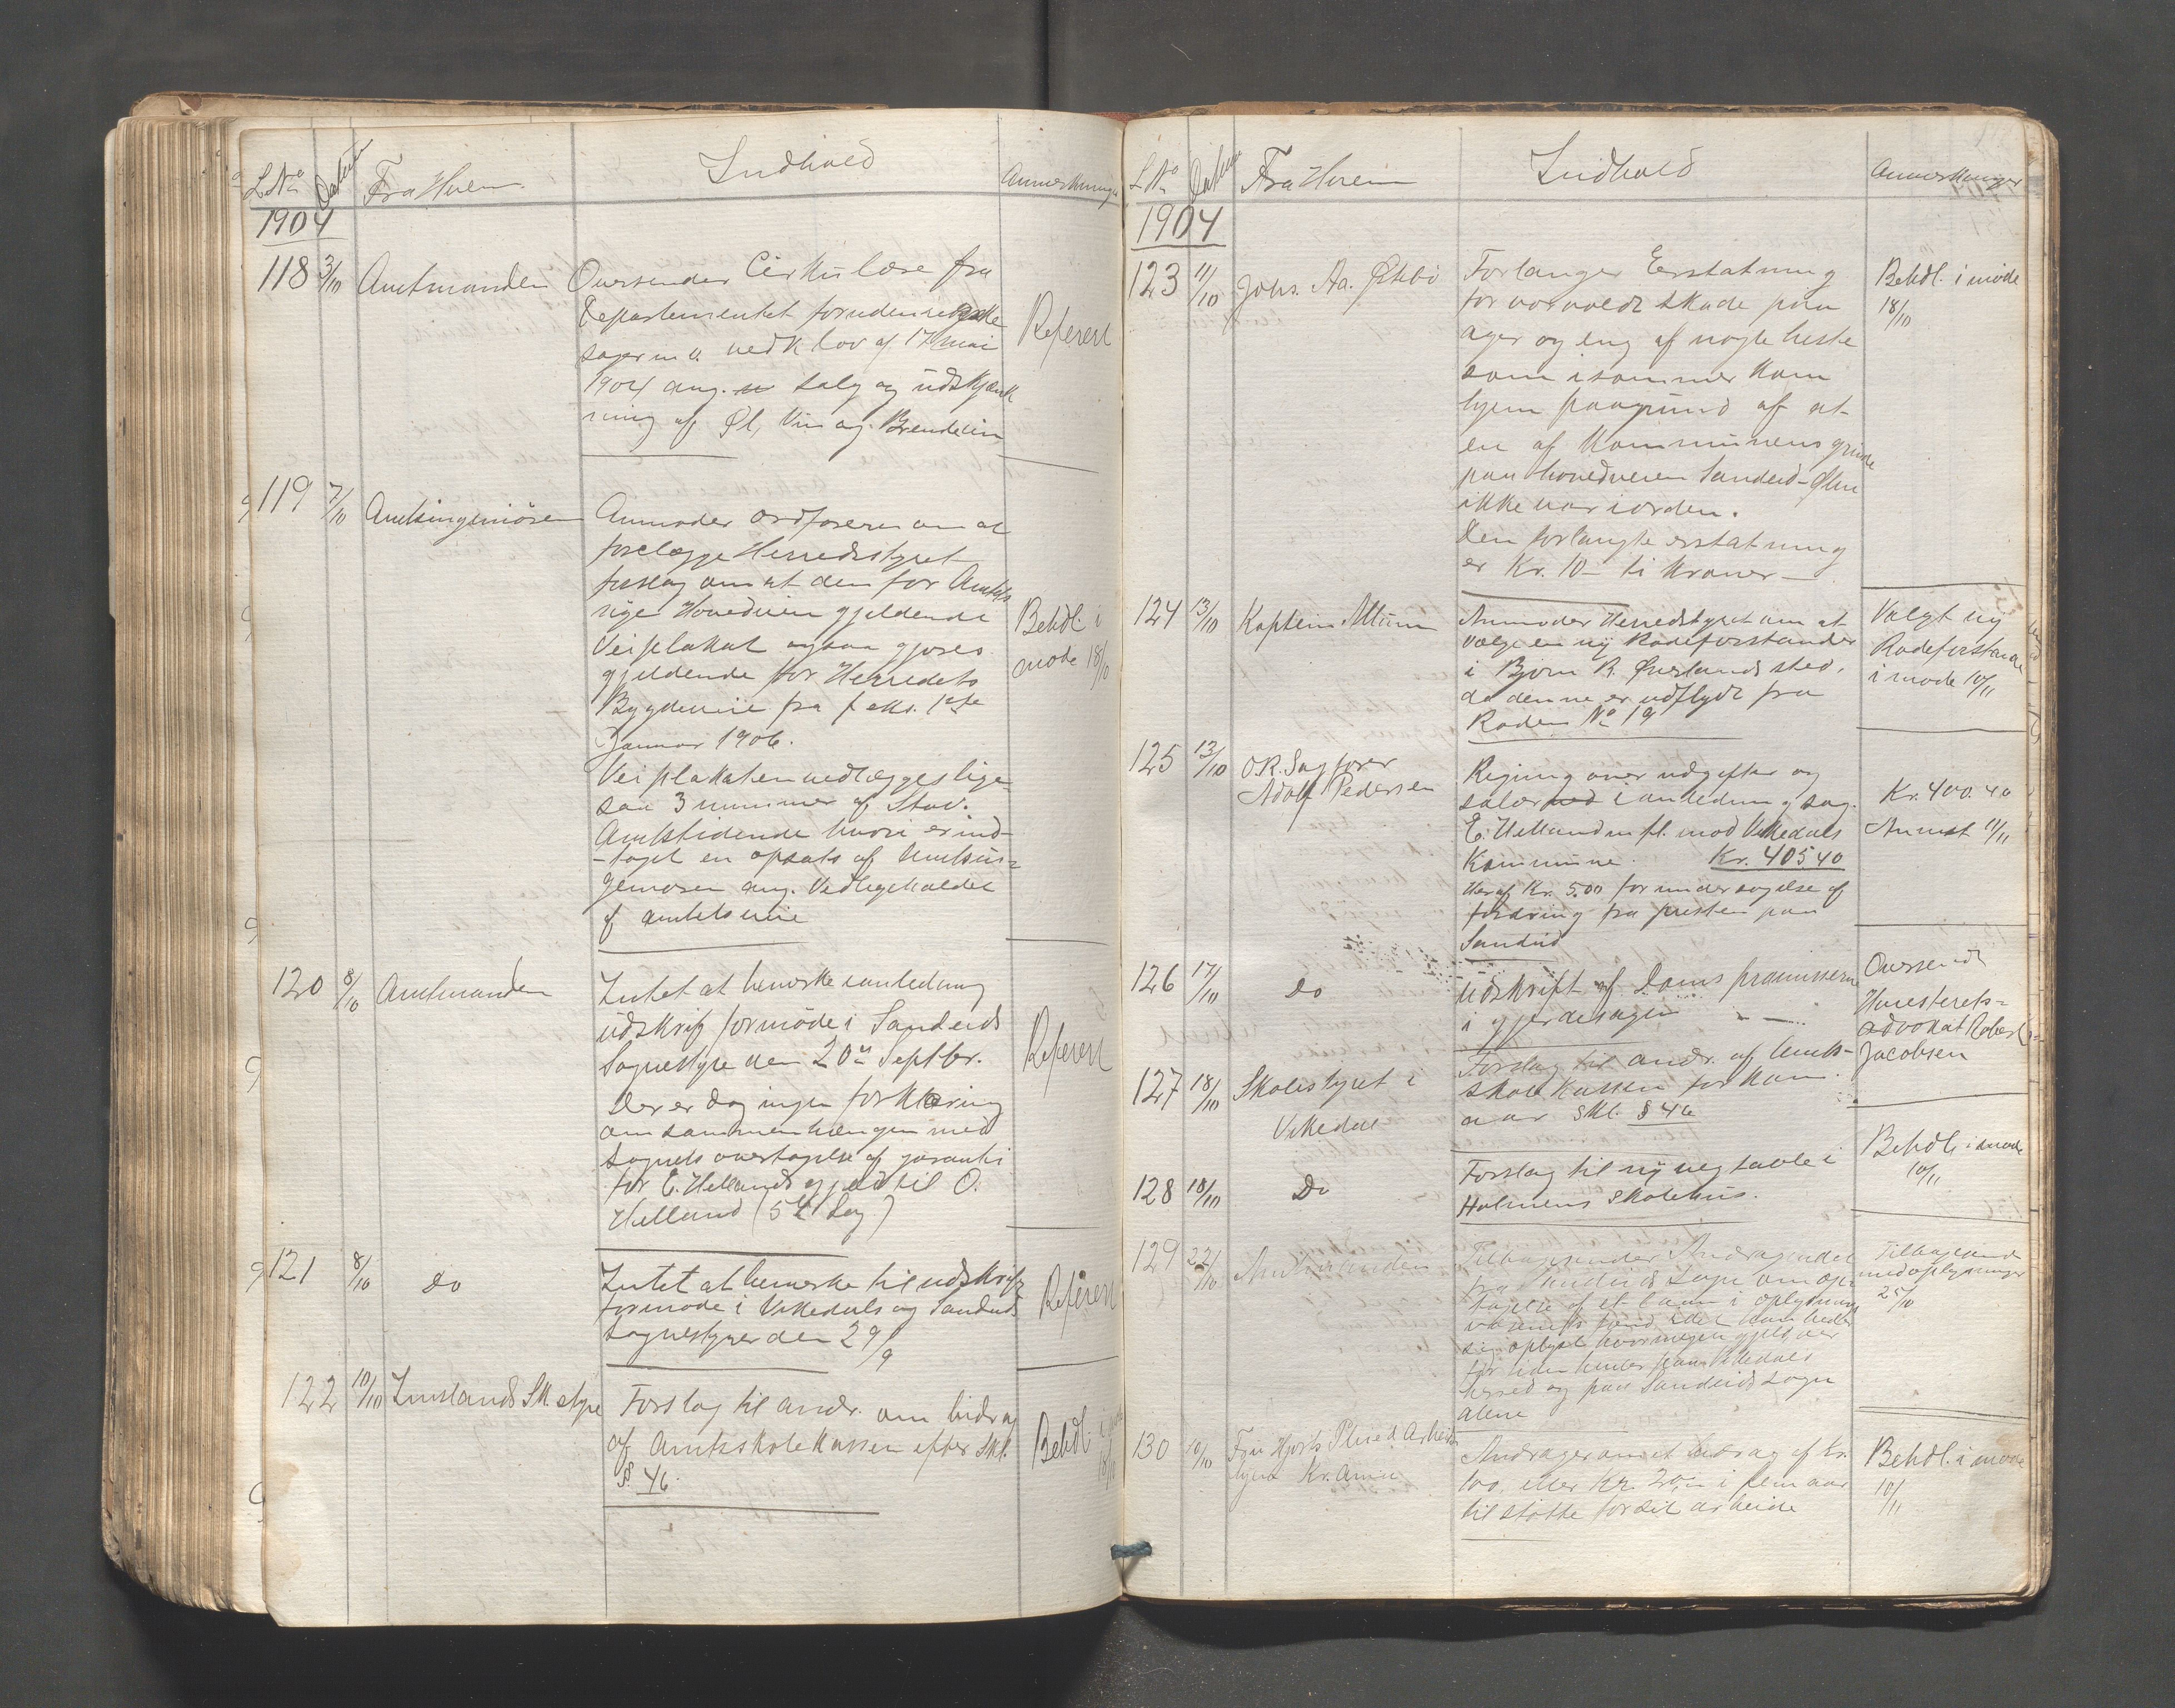 L.No Datum Fra Hvem Indhold Anmerkninger
1904
118 3/10 Amtmanden Oversender Cirkulære fra
Departementet for udenrigske
sager m.v. vedk lov af 17 mai
1904 ang. salg og udskjænk
ning af Øl, Vin og Brændevin
Referert
119 7/10 Amtsingeniøren Anmoder ordføreren om at
forelægge Herredsstyret
forslag om at den for Amtets
rige Hovedveie gjeldende
Veiplakat ogsaa gjøres
gjeldende for Herredets
Bygdeveie fra f eks. 1ste
Januar 1906.
Veiplakaten vedlægges lige-
saa 3 nummer af Stav.
Amtstidende hvori er ind-
-taget en opsats af Amtsin=
geniøren ang. Vedligeholdet
af amtets veie
Behdl. i
møde 18/10
120 8/10 Amtmanden Intet at bemerke i anledning
udskrift for møde i Sandeids
Sognestyre den 20de Septbr.
Der er dog ingen forklaring
om sammenhængen med
sognets overtagelse af garanti
for E. Hellands gjeld til O.
Helland (5te Sag)
Referert
121 8/10 Do Intet at bemerke til udskrift
for møde i Vikedals og Sandeids
sognestyrer den 29/9
Referert
122 10/10 Imslands Sk. styre Forslag til andr. om bidrag
af Amtsskolekassen efter Skl.
§. 46.
Behdl. i møde
18/10
L.No Datum Fra Hvem Indhold Anmerkninger
1904
123 11/10 Johs. Aa. Østebø Forlanger Erstatning
for voldt skade paa
ager og eng af nogle heste
som i sommer kom
hjem paagrund af at
en af kommunens grinde
paa hovedveien Sandeid-Ølen
ikke var i orden.
Den forlangte erstatning
er Kr. 10 - ti kroner -
Behdl. i møde
18/10
124 13/10 Kaptein Anmoder Herredstyret om at
vælge en ny Rodeforstander
i Bjørn R. Øverlands sted,
da denne er udflydt fra
Roden No 19
Valgt ny
Rodeforstander
i møde 10/11
125 13/10 O.R. Sagfører
Adolf Pedersen
Regning over udgifter og
salær i anledning sag.
E. Helland m fl. mod Vikedals
Kommune. Kr. 405 40
Heraf Kr. 5.00 for undersøgelse af
fordring fra presten paa
Sandeid
Kr. 400. 40
Anvist 11/11
126 17/10 Do Udskrift af Doms præmisserne
i gjerdesagen
Oversendt
Høiesterets=
advokat Robert
Jacobsen
127 18/10 Skolestyret i
Vikedal
Forslag til andr. af Amts-
skolekassen for kom.
aar skl. § 46
128 18/10 Do Forslag til ny vegtavle i
Holmens skolehus.
Behdl. i møde
10/11
129 22/10 Amtmanden Tilbagesender Andragendet
fra Sandeids Sogn om op-
tagelse af et laan i oplysnings
væsenets fond idet han beder
sig oplyst hvormegen gjeld der
for tiden hviler paa Vikedals
herred og paa Sandeids sogn
alene
Tilbagesendt
med oplysninger
25/10
130 10/10 Fru Hjorts Pleie & Arbeids
hjem Kr. ania
Andrager om et bidrag af Kr.
100, eller Kr. 20,- i fem aar
til støtte for sit arbeide
Behdl. i møde
10/11